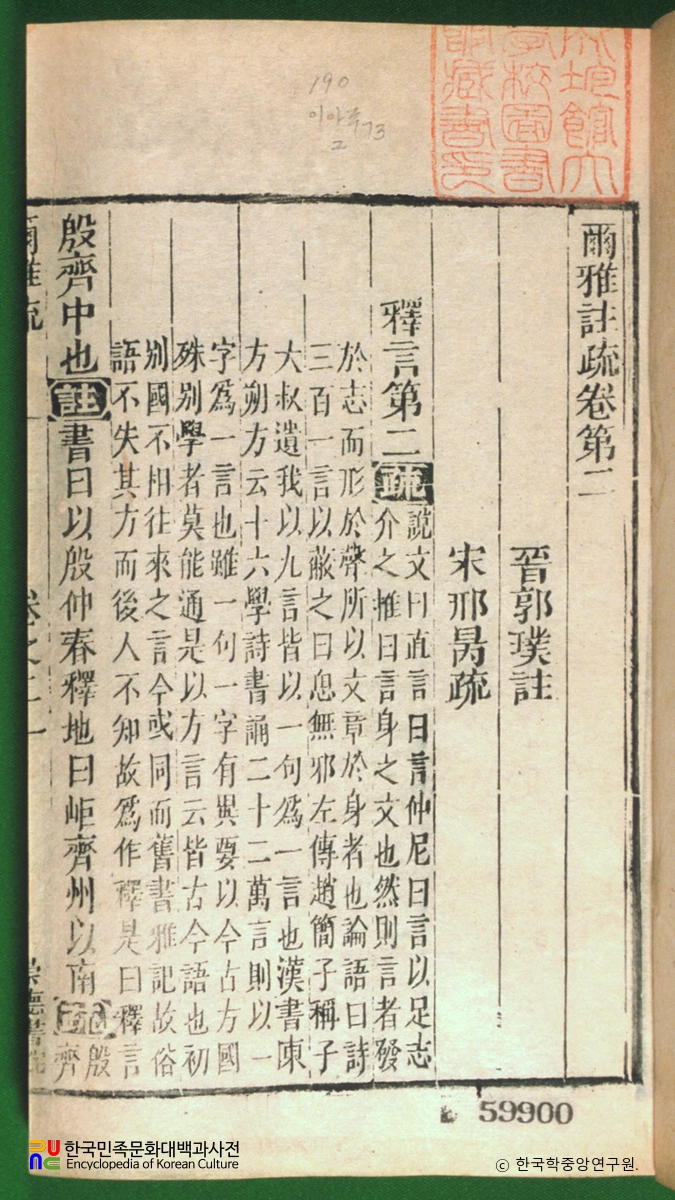 190
이아주 73
2
館大
校圖書
藏書印
爾雅註疏卷第二
晉郭璞註
宋邢昺疏
釋言第二 疏 說文曰直言曰言仲尼曰言以足志
介之推曰言身之文也然則言者發
於志而形於聲所以文章於身者也論語曰詩
三百一言以蔽之曰思無邪左傳趙簡子稱子
大叔遺我以九言皆以一句爲一言也漢書東
方朔方云十六學詩書誦二十二萬言則以一
字爲一言也雖一句一字有異要以今古方國
殊別學者莫能通是以方言云皆古今語也初
別國不相往來之言今或同而舊書雅記故俗
語不失其方而後人不知故爲作釋是曰釋言
殷齊中也 註 書曰以殷仲春釋地曰岠齊州以南 疏 殷
齊
爾雅疏 卷之二 一
59900
한국민족문화대백과사전
Encyclopedia of Korean Culture
© 한국학중앙연구원.